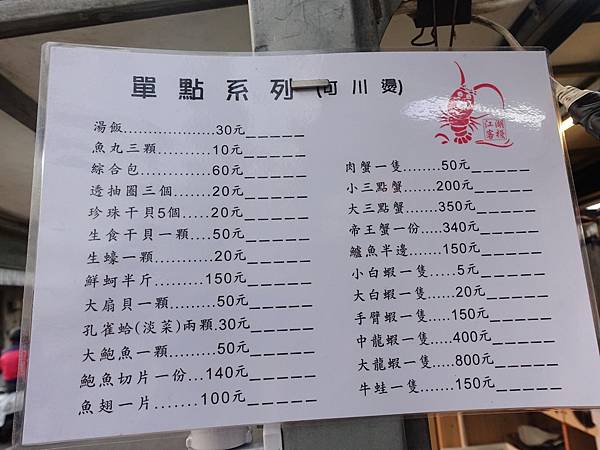 單點系列(可川燙)
江湖
客棧
湯飯....................30元_____
魚丸三顆..........10元_____
綜合包.............60元_____
透抽圈三個.......20元_____
珍珠干貝5個.....20元_____
生食干貝一顆....50元_____
生蠔一顆...........20元_____
鮮蚵半斤.........150元_____
大扇貝一顆........50元_____
孔雀蛤(淡菜)兩顆.30元_____
大鮑魚一顆........50元_____
鮑魚切片一份...140元_____
魚翅一片.......100元_____
肉蟹一隻........50元_____
小三點蟹.......200元_____
大三點蟹.......350元_____
帝王蟹一份.....340元_____
鱸魚半邊.......150元_____
小白蝦一隻.....5元_____
大白蝦一隻......20元_____
手臂蝦一隻.....150元_____
中龍蝦一隻.....400元_____
大龍蝦一隻.....800元_____
牛蛙一隻.......150元_____